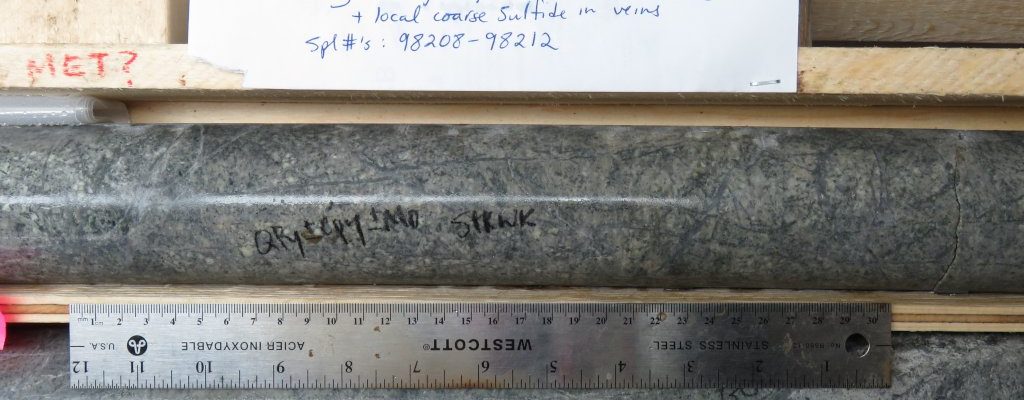 + local coarse Sulfide in veins
Spl #'s : 98208-98212
MET?
QPy±Cpy±Mo STKWK
mm 1 2 3 4 5 6 7 8 9 10 11 12 13 14 15 16 17 18 19 20 21 22 23 24 25 26 27 28 29 30
U.S.A. ACIER INOXYDABLE WESTCOTT® STAINLESS STEEL
12 11 10 9 8 7 6 5 4 3 2 1